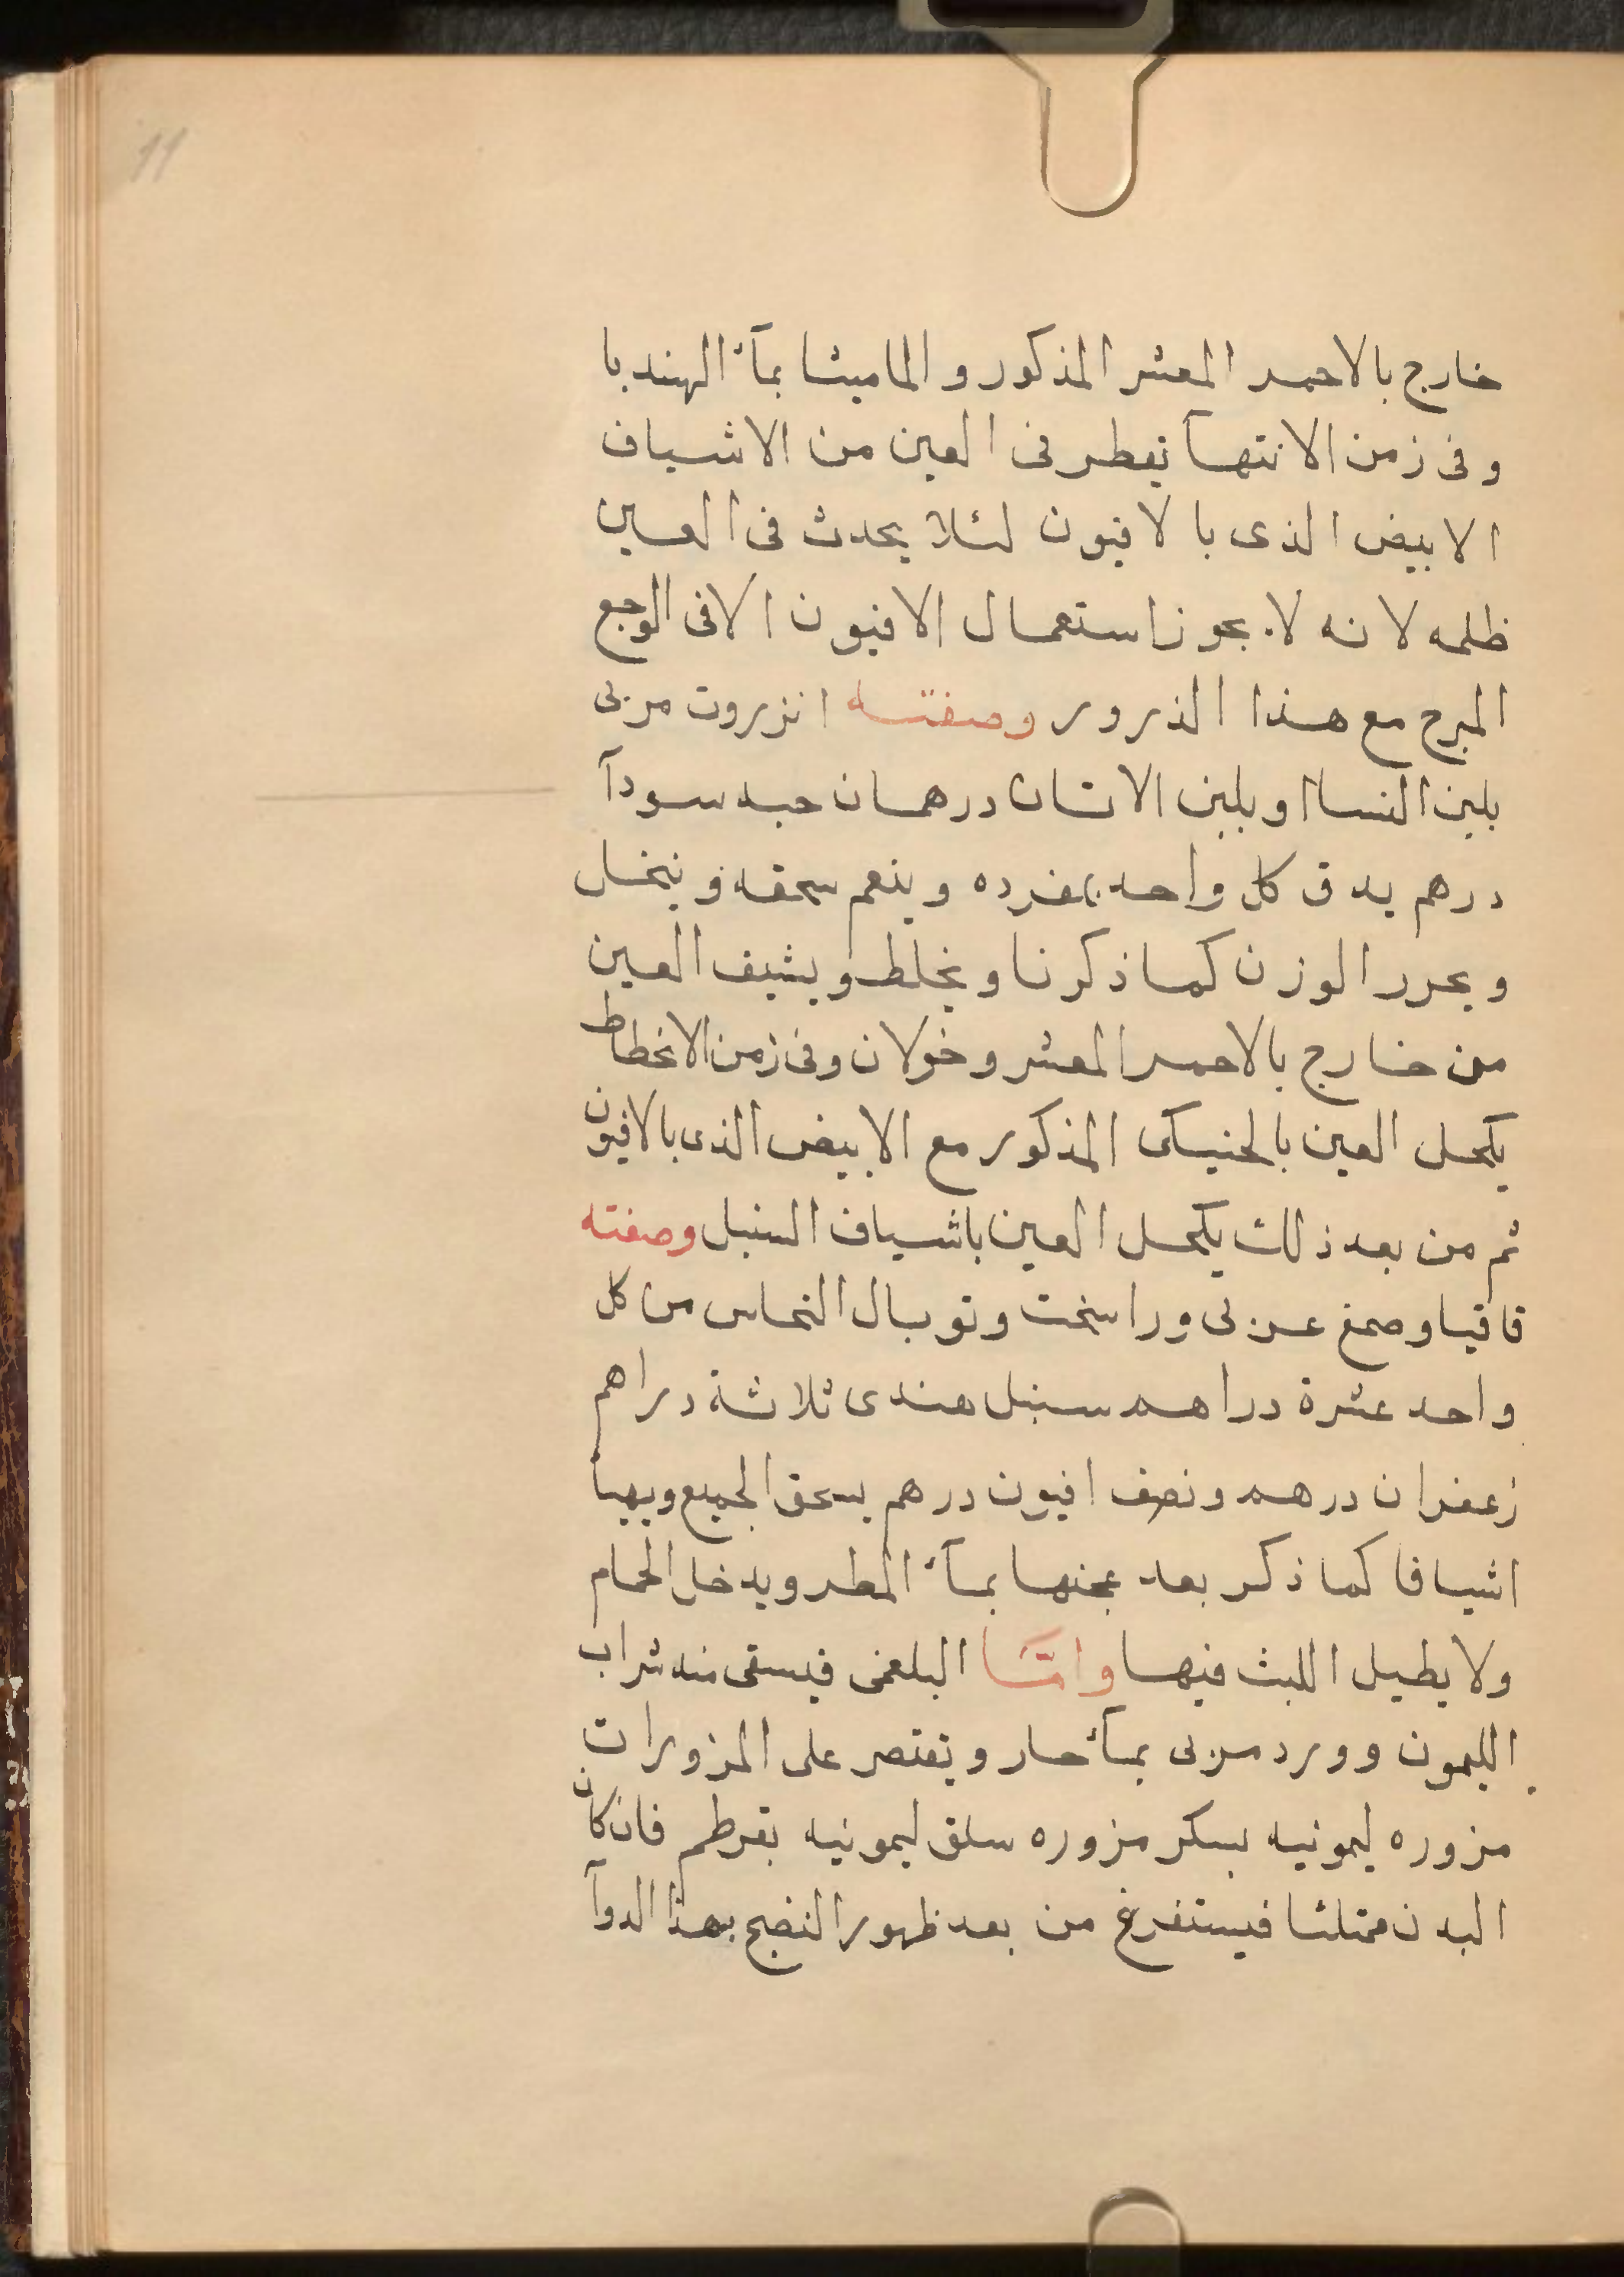 11
خارج بالاحمر المعشر المذكور و الماميثا بمآء الهندبا
وفى زمن الانتهآ تقطر فى العين من الاشياف
الابيض الذى بالافيون لئلا يحدث فى العين
ظلمه لانه لا يجوز استعمال الافيون الا فى الوجع
المبرح مع هذا الذرور وصفته انزروت مربى
بلبن النسا او بلبن الاتان درهمان حبه سودآ
درهم يدق كل واحد بمفرده وينعم سحقه و ينخل
و يحرر الوزن كما ذكرنا و يخلط و يشيف العين
من خارج بالاحمر المعشر و خولان وفى زمن الانحطاط
يكحل العين بالجنيكى المذكور مع الابيض الذى بالافيون
ثم من بعد ذلك يكحل العين باشياف السنبل وصفته
قاقيا وصمغ عربى وراسخت وتوبال النحاس من كل
واحد عشرة دراهم سنبل هندى ثلاثة دراهم
زعفران درهم ونصف افيون درهم يسحق الجميع ويهيا
اشيافا كما ذكر بعد عجنها بمآء المطر ويدخل الحمام
ولا يطيل اللبث فيها وامّا البلغمى فيسقى منه شراب
الليمون وورد مربى بمآء حار و يقتصر على المزورات
مزوره ليمونيه بسكر مزوره سلق ليمونيه بقرطم فان كان
البدن ممتلئا فيستفرغ من بعد ظهور النضج بهذا الدوآ